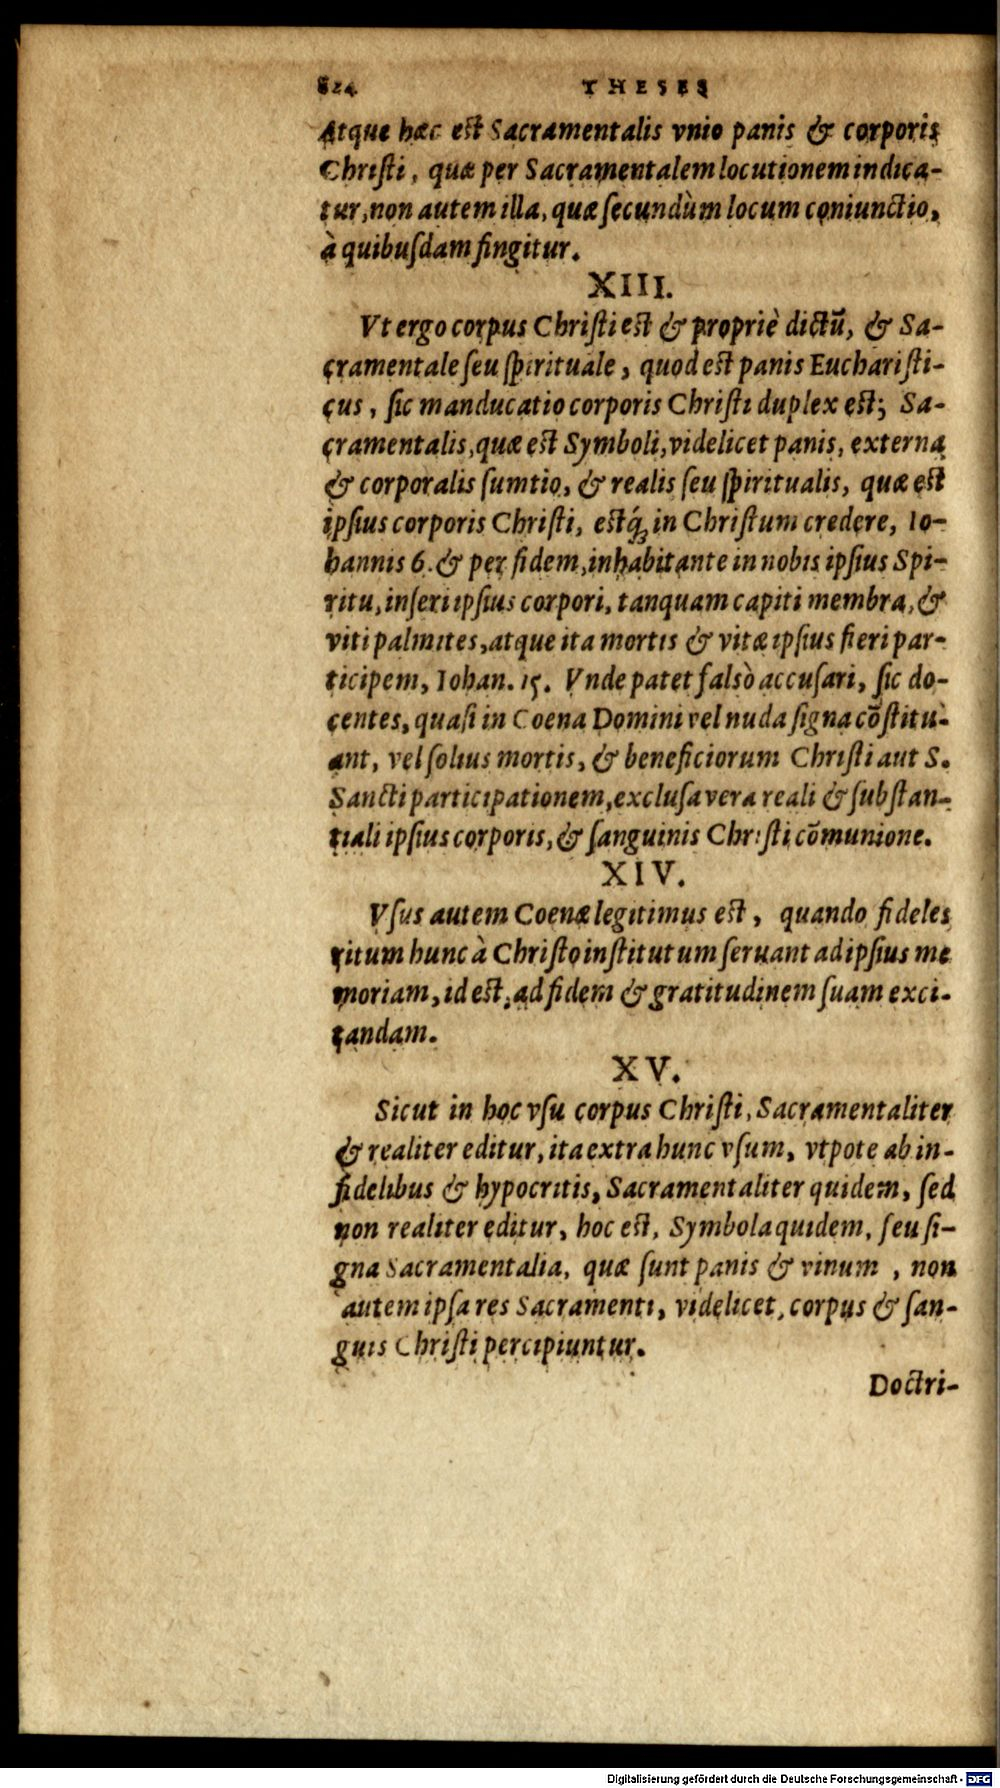 824 THESES
Atque hæc est Sacramentalis vnio panis & corporis
Christi, quæ per Sacramentalem locutionem indica-
tur, non autem illa, quæ secundùm locum coniunctio,
à quibusdam fingitur.
XIII.
Vt ergo corpus Christi est & propriè dictũ, & Sa-
cramentale seu spirituale, quod est panis Eucharisti-
cus, sic manducatio corporis Christi duplex est; Sa-
cramentalis, quæ est Symboli, videlicet panis, externa
& corporalis sumtio, & realis seu spiritualis, quæ est
ipsius corporis Christi, estq́; in Christum credere, Io-
hannis 6. & per fidem, inhabitante in nobis ipsius Spi-
ritu, inseri ipsius corpori, tanquam capiti membra, &
viti palmites, atque ita mortis & vitæ ipsius fieri par-
ticipem, Iohan. 15. Vnde patet falsò accusari, sic do-
centes, quasi in Coena Domini vel nuda signa cõstitu-
ant, vel solius mortis, & beneficiorum Christi aut S.
Sancti participationem, exclusa vera reali & substan-
tiali ipsius corporis, & sanguinis Christi cõmunione.
XIV.
Vsus autem Coenæ legitimus est, quando fideles
ritum hunc à Christo institutum seruant ad ipsius me
moriam, id est, ad fidem & gratitudinem suam exci-
tandam.
XV.
Sicut in hoc vsu corpus Christi, Sacramentaliter
& realiter editur, ita extra hunc vsum, vtpote ab in-
fidelibus & hypocritis, Sacramentaliter quidem, sed
non realiter editur, hoc est, Symbola quidem, seu si-
gna Sacramentalia, quæ sunt panis & vinum, non
autem ipsa res Sacramenti, videlicet, corpus & san-
guis Christi percipiuntur.
Doctri-
Digitalisierung gefördert durch die Deutsche Forschungsgemeinschaft - DFG